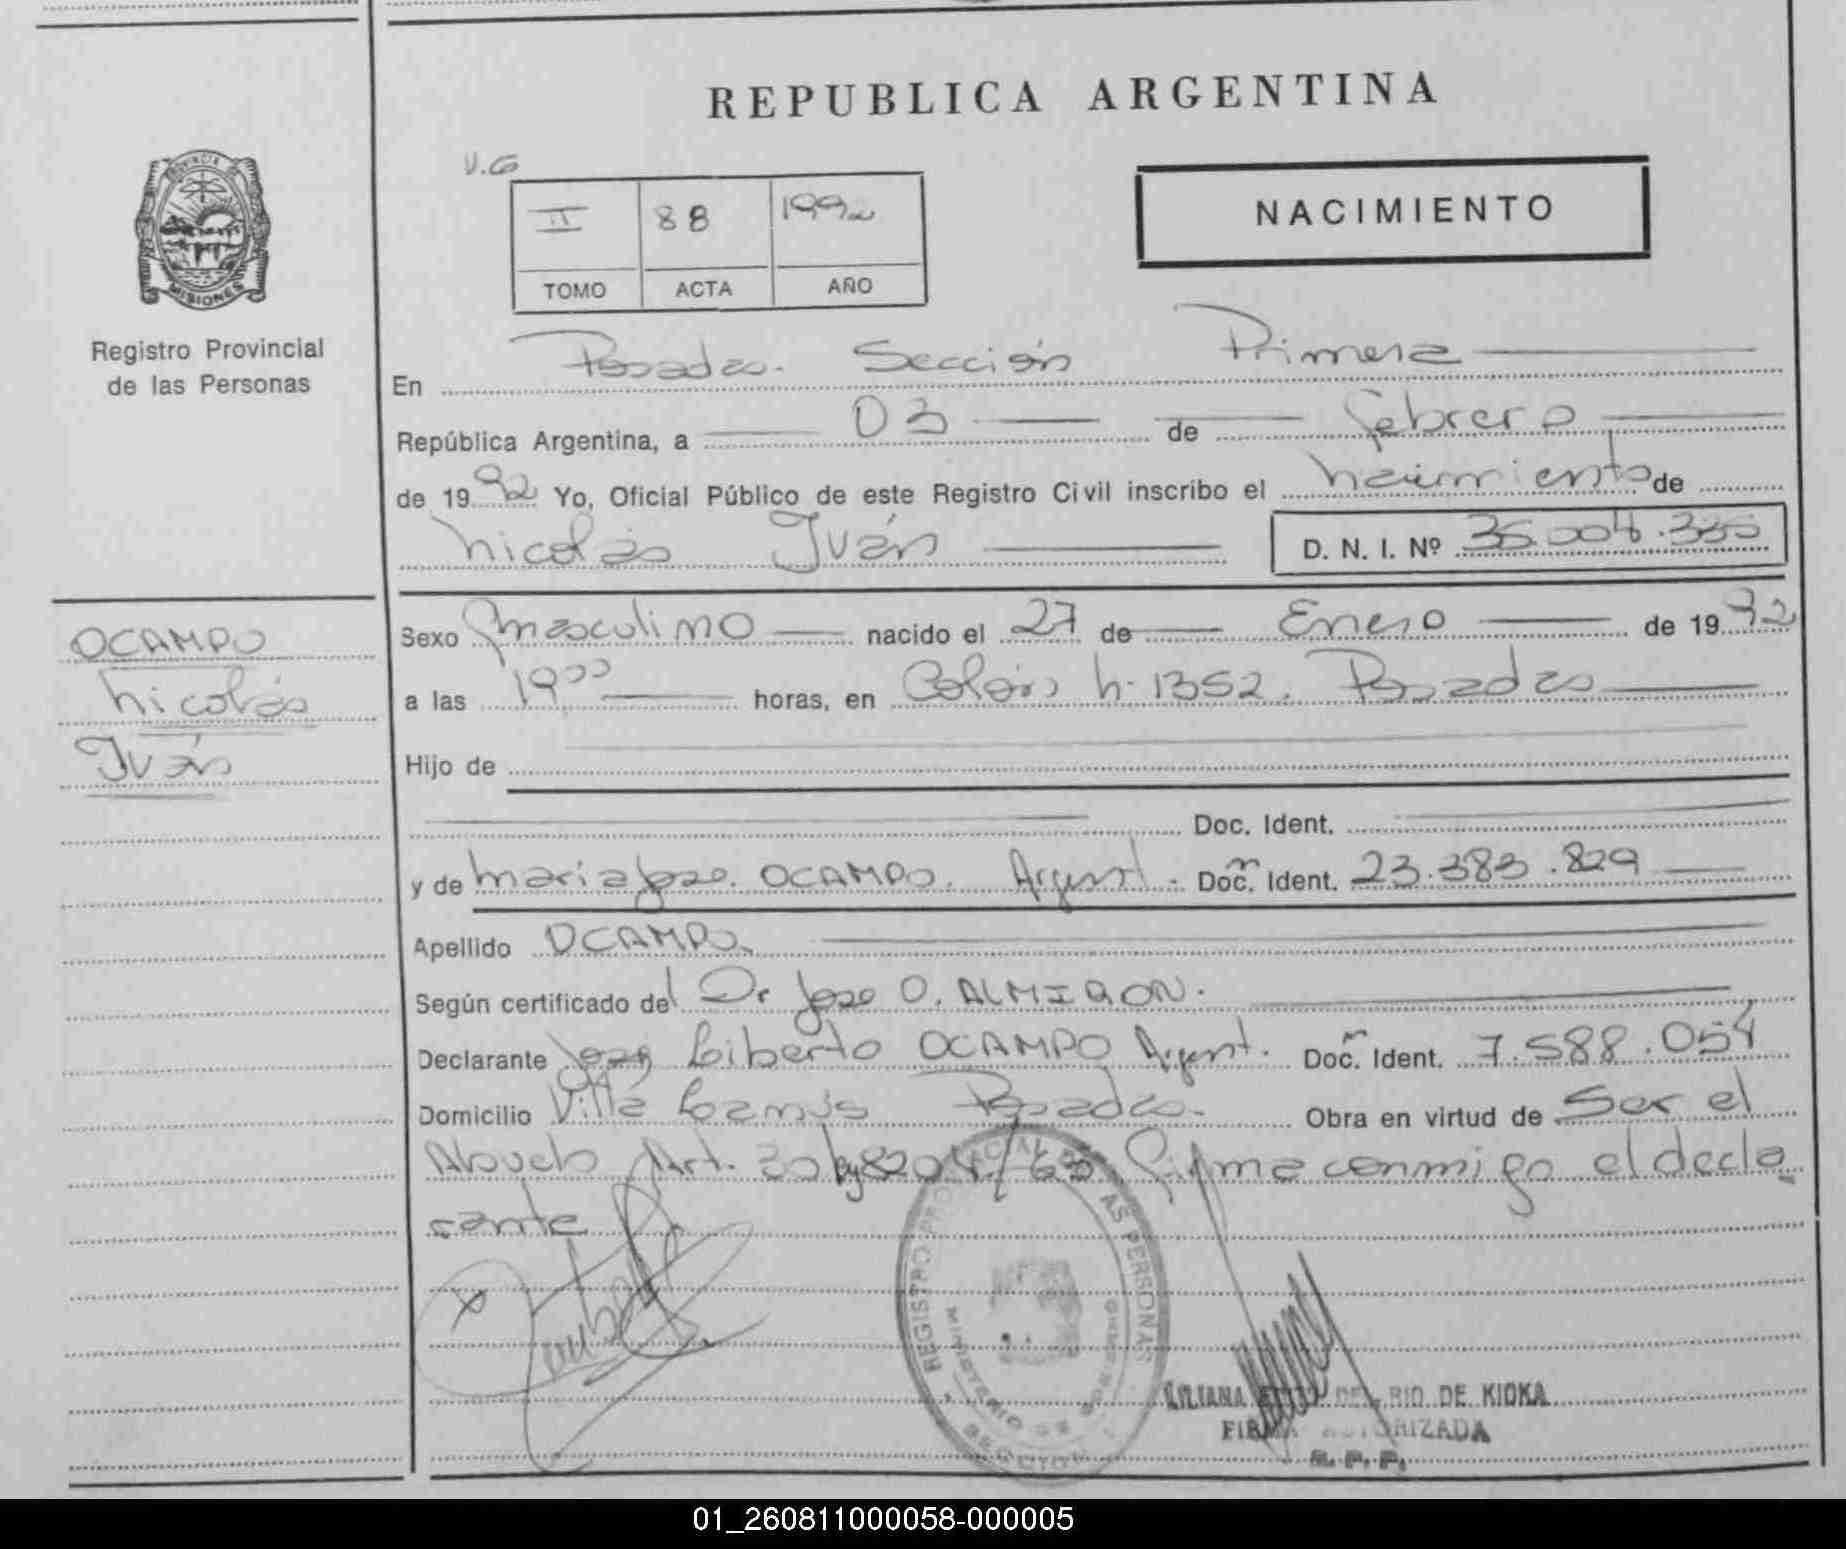 REPUBLICA ARGENTINA
PROVINCIA
MISIONES
Registro Provincial
de las Personas
V.G
II 88 1992
TOMO ACTA AÑO
NACIMIENTO
En Posadas. Sección Primera
República Argentina, a 03 de febrero
de 1992 Yo, Oficial Público de este Registro Civil inscribo el nacimiento de
Nicolás Iván D. N. I. Nº 35.004.335
OCAMPO
Nicolás
Iván
Sexo masculino nacido el 27 de Enero de 1992
a las 19⁰⁰ horas, en Colón N-1352. Posadas
Hijo de
Doc. Ident.
y de Maria Jose. OCAMPO. Argent. Doc. Ident. 23.383.829
Apellido OCAMPO.
Según certificado del Dr Jose O. ALMIRON.
Declarante Liberto OCAMPO Argent. Doc. Ident. 7.588.054
Domicilio Villa Lanús Posadas. Obra en virtud de Ser el
Abuelo Art. 30 Ley 8204/63 Firma conmigo el decla
rante
X
REGISTRO PROVINCIAL DE LAS PERSONAS
MINISTERIO DE GOBIERNO
SECCION
LILIANA DEL RIO DE KIOKA
FIRMA AUTORIZADA
R. P. P.
01_260811000058-000005